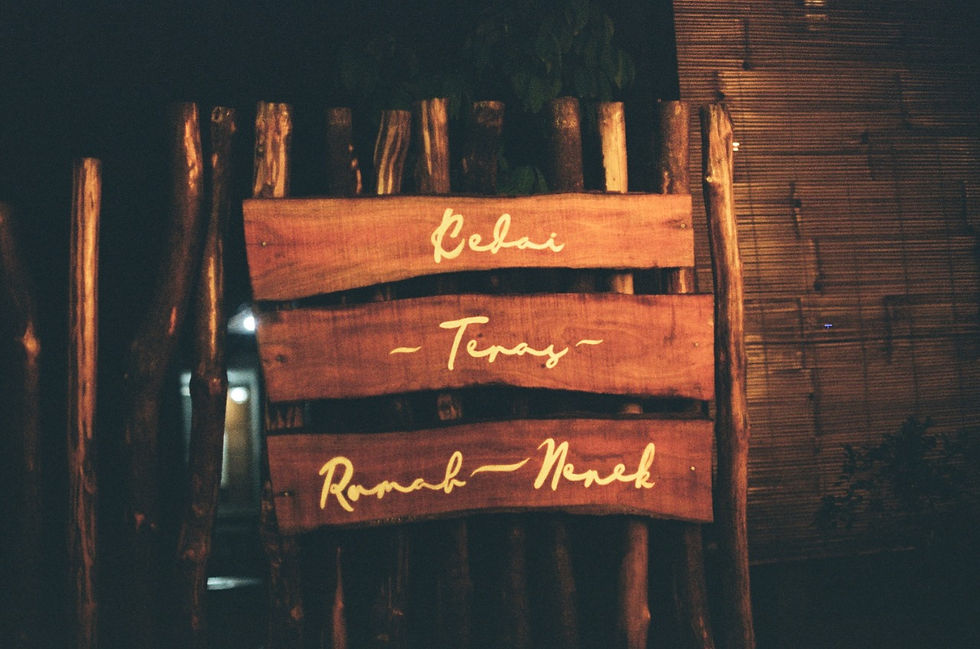 Kedai
~ Teras ~
Rumah Nenek